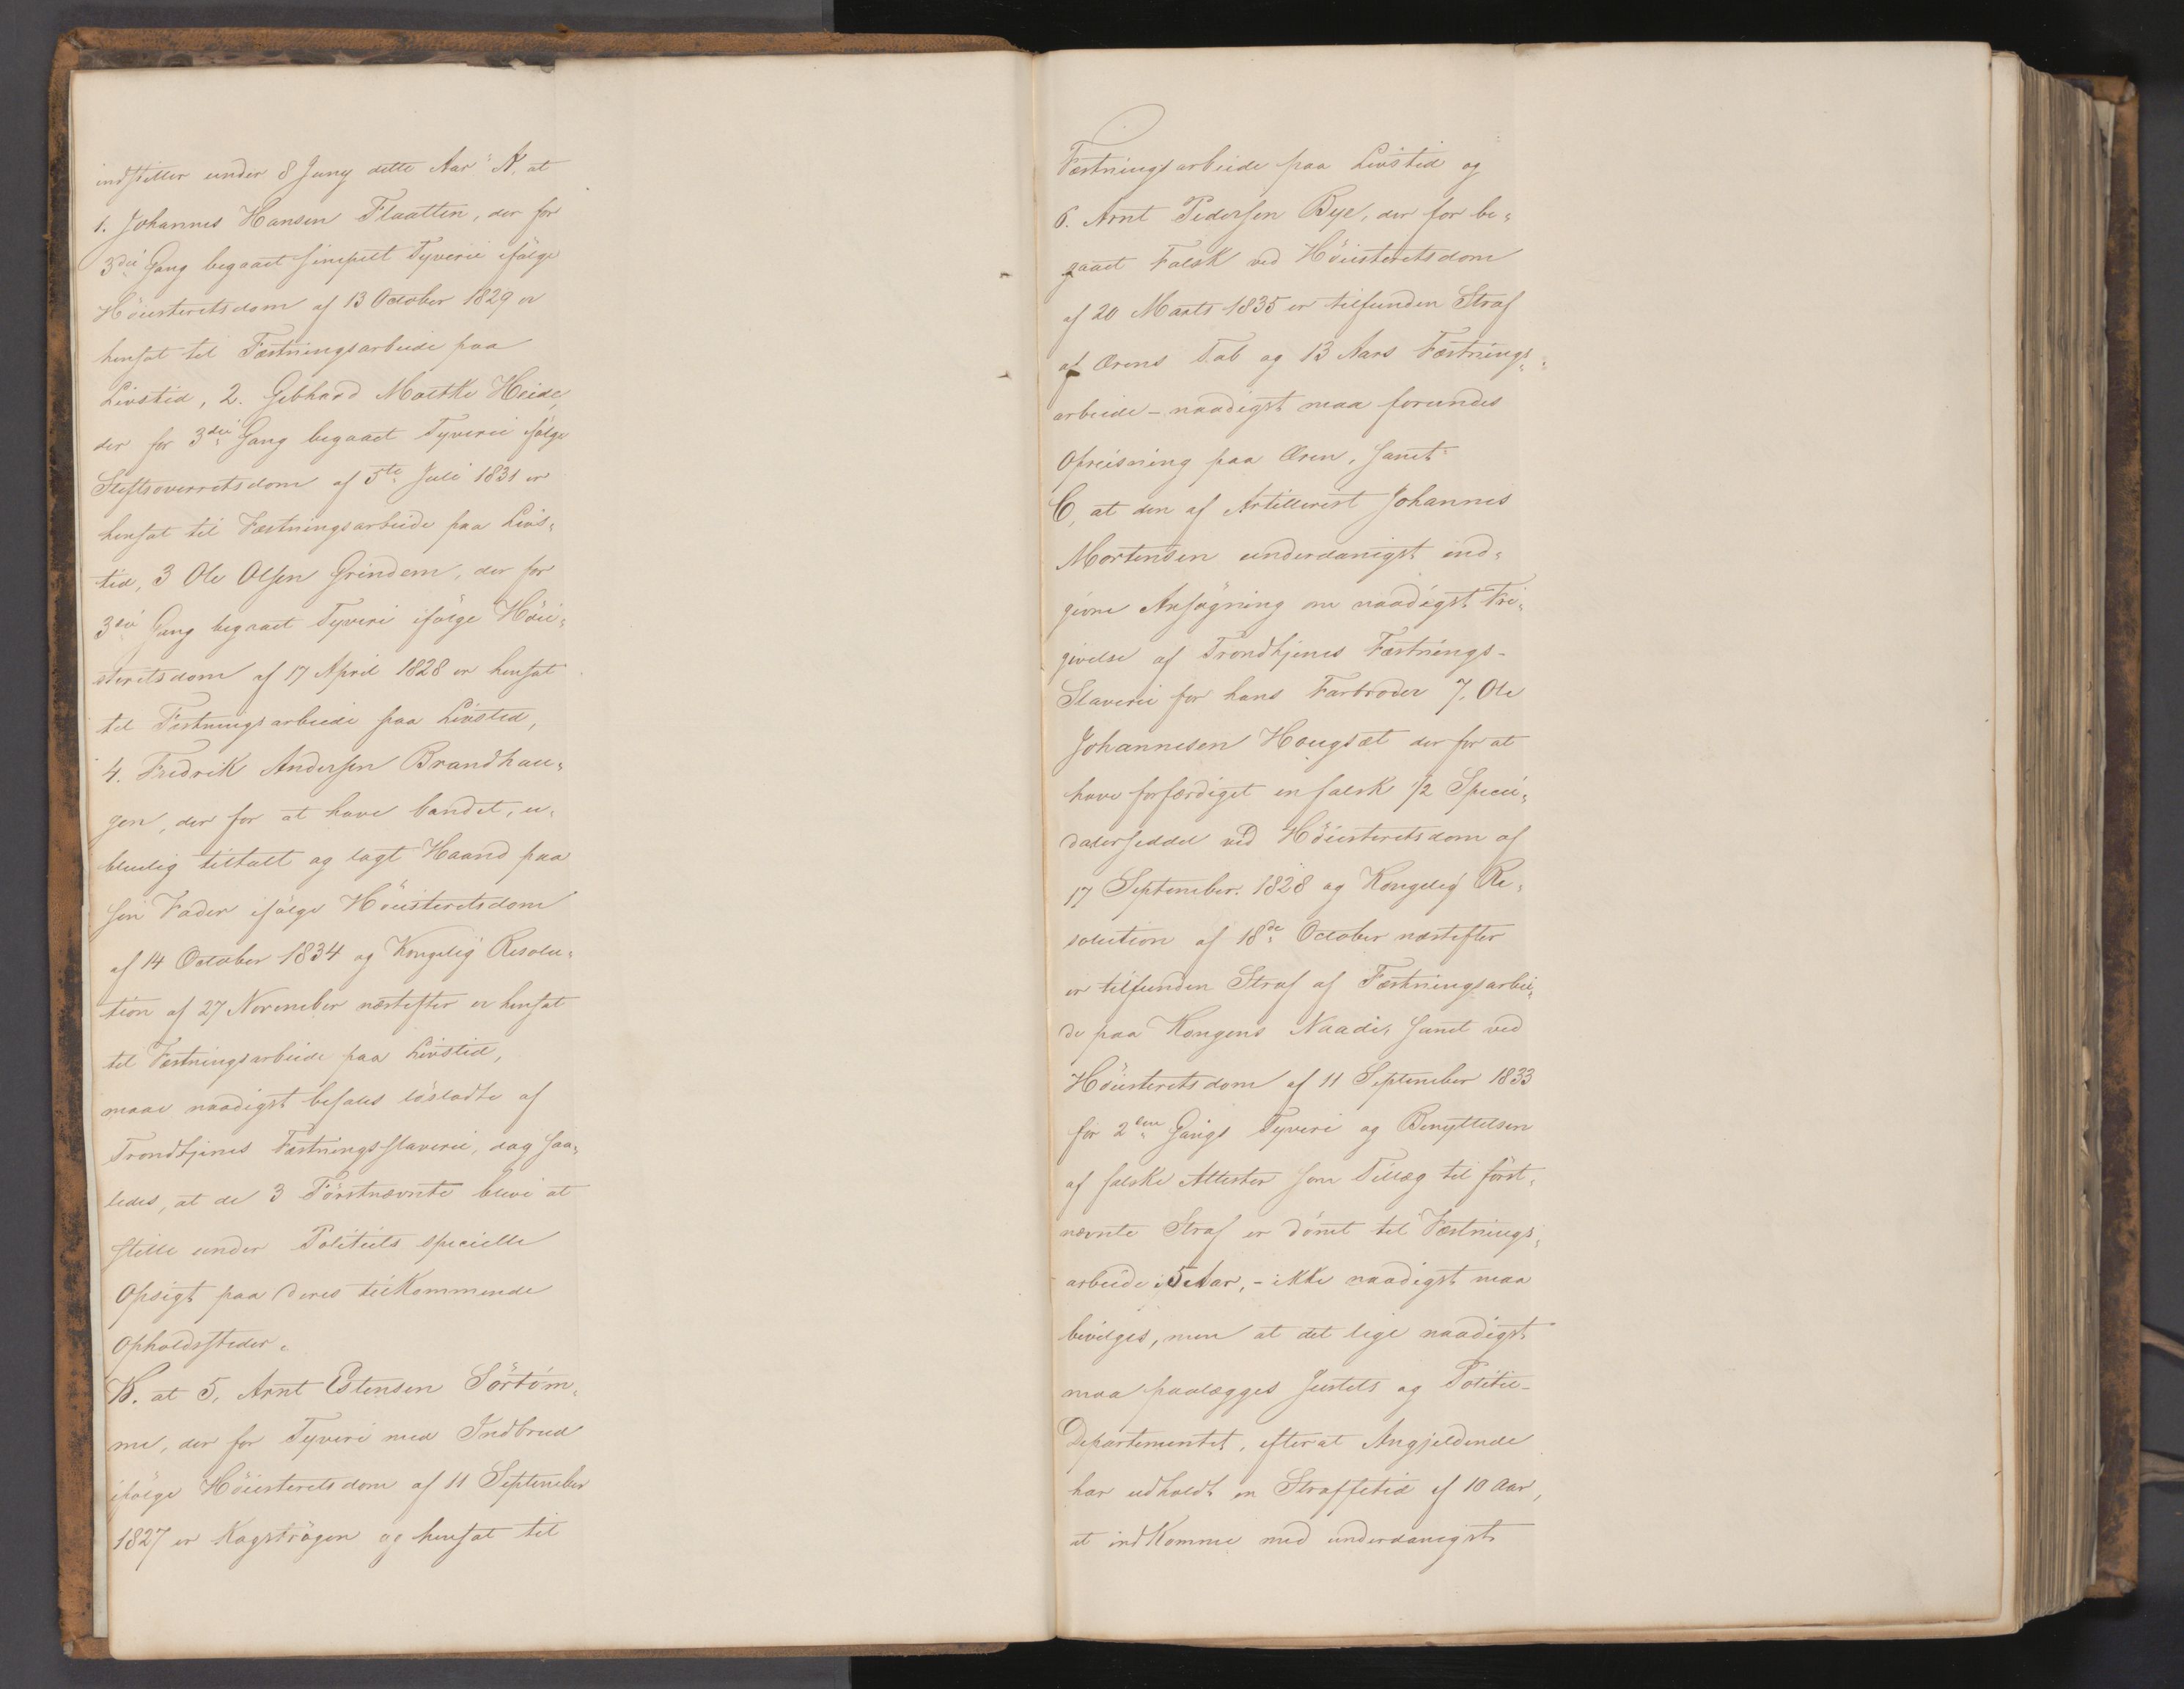 indstiller under 8 Juny dette Aar: A, at
1. Johannes Hansen Flaatten, der for
3die Gang begaaet simpelt Tyverie ifölge
Höiesteretsdom af 13 October 1829 er
hensat til Fæstningsarbeide paa
Livstid, 2. Gebhard Moltke Heide,
der for 3die Gang begaaet Tyverie ifölge
Stiftsoverretsdom af 5te Juli 1831 er
hensat til Fæstningsarbeide paa Livs-
tid, 3 Ole Olsen Grindem, der for
3die Gang begaaet Tyveri ifölge Höie-
steretsdom af 17 April 1828 er hensat
til Fæstningsarbeide paa Livstid,
4. Fredrik Andersen Brandhau-
gen, der for at have bandet, u-
bluelig tiltalt og lagt Haand paa
sin Fader ifölge Höiesteretsdom
af 14 October 1834 og Kongelig Resolu-
tion af 27 November næstefter er hensat
til Fæstningsarbeide paa Livstid,
maae naadigst befales lösladte af
Trondhjems Fæstningsslaverie, dog saa-
ledes, at de 3 Förstnævnte blive at
stille under Politiets specielle
Opsigt paa deres tilkommende
Opholdssteder.
B. at 5, Arnt Estensen Sörtöm-
me, der for Tyveri med Indbrud
ifölge Höiesteretsdom af 11 September
1827 er Kagströgen og hensat til
Fæstningsarbeide paa Livstid og
6. Arnt Pedersen Bye, der for be-
gaaet Falsk ved Höiesteretsdom
af 20 Marts 1835 er tilfunden Straf
af Ærens Tab og 13 Aars Fæstnings-
arbeide - naadigst maa forundes
Opreisning paa Æren, samt
C, at den af Artillerist Johannes
Mortensen underdanigst ind-
givne Ansögning om naadigst Fri-
givelse af Trondhjems Fæstnings-
Slaverie for hans Farbroder 7. Ole
Johannesen Haugsæt der for at
have forfærdiget en falsk 1/2 Specie-
dalerseddel ved Höiesteretsdom af
17 September 1828 og Kongelig Re-
solution af 18de October næstefter
er tilfunden Straf af Fæstningsarbei-
de paa Kongens Naade, samt ved
Höiesteretsdom af 11 September 1833
for 2den Gangs Tyveri og Benyttelsen
af falske Attester som Tillæg til först-
nævnte Straf er dömt til Fæstnings-
arbeide i 5 Aar, - ikke naadigst maa
bevilges, men at det lige naadigst
maa paalægges Justits og Politie-
Departementet, efterat Angjeldende
har udholdt en Straffetid af 10 Aar,
at indkomme med underdanigst